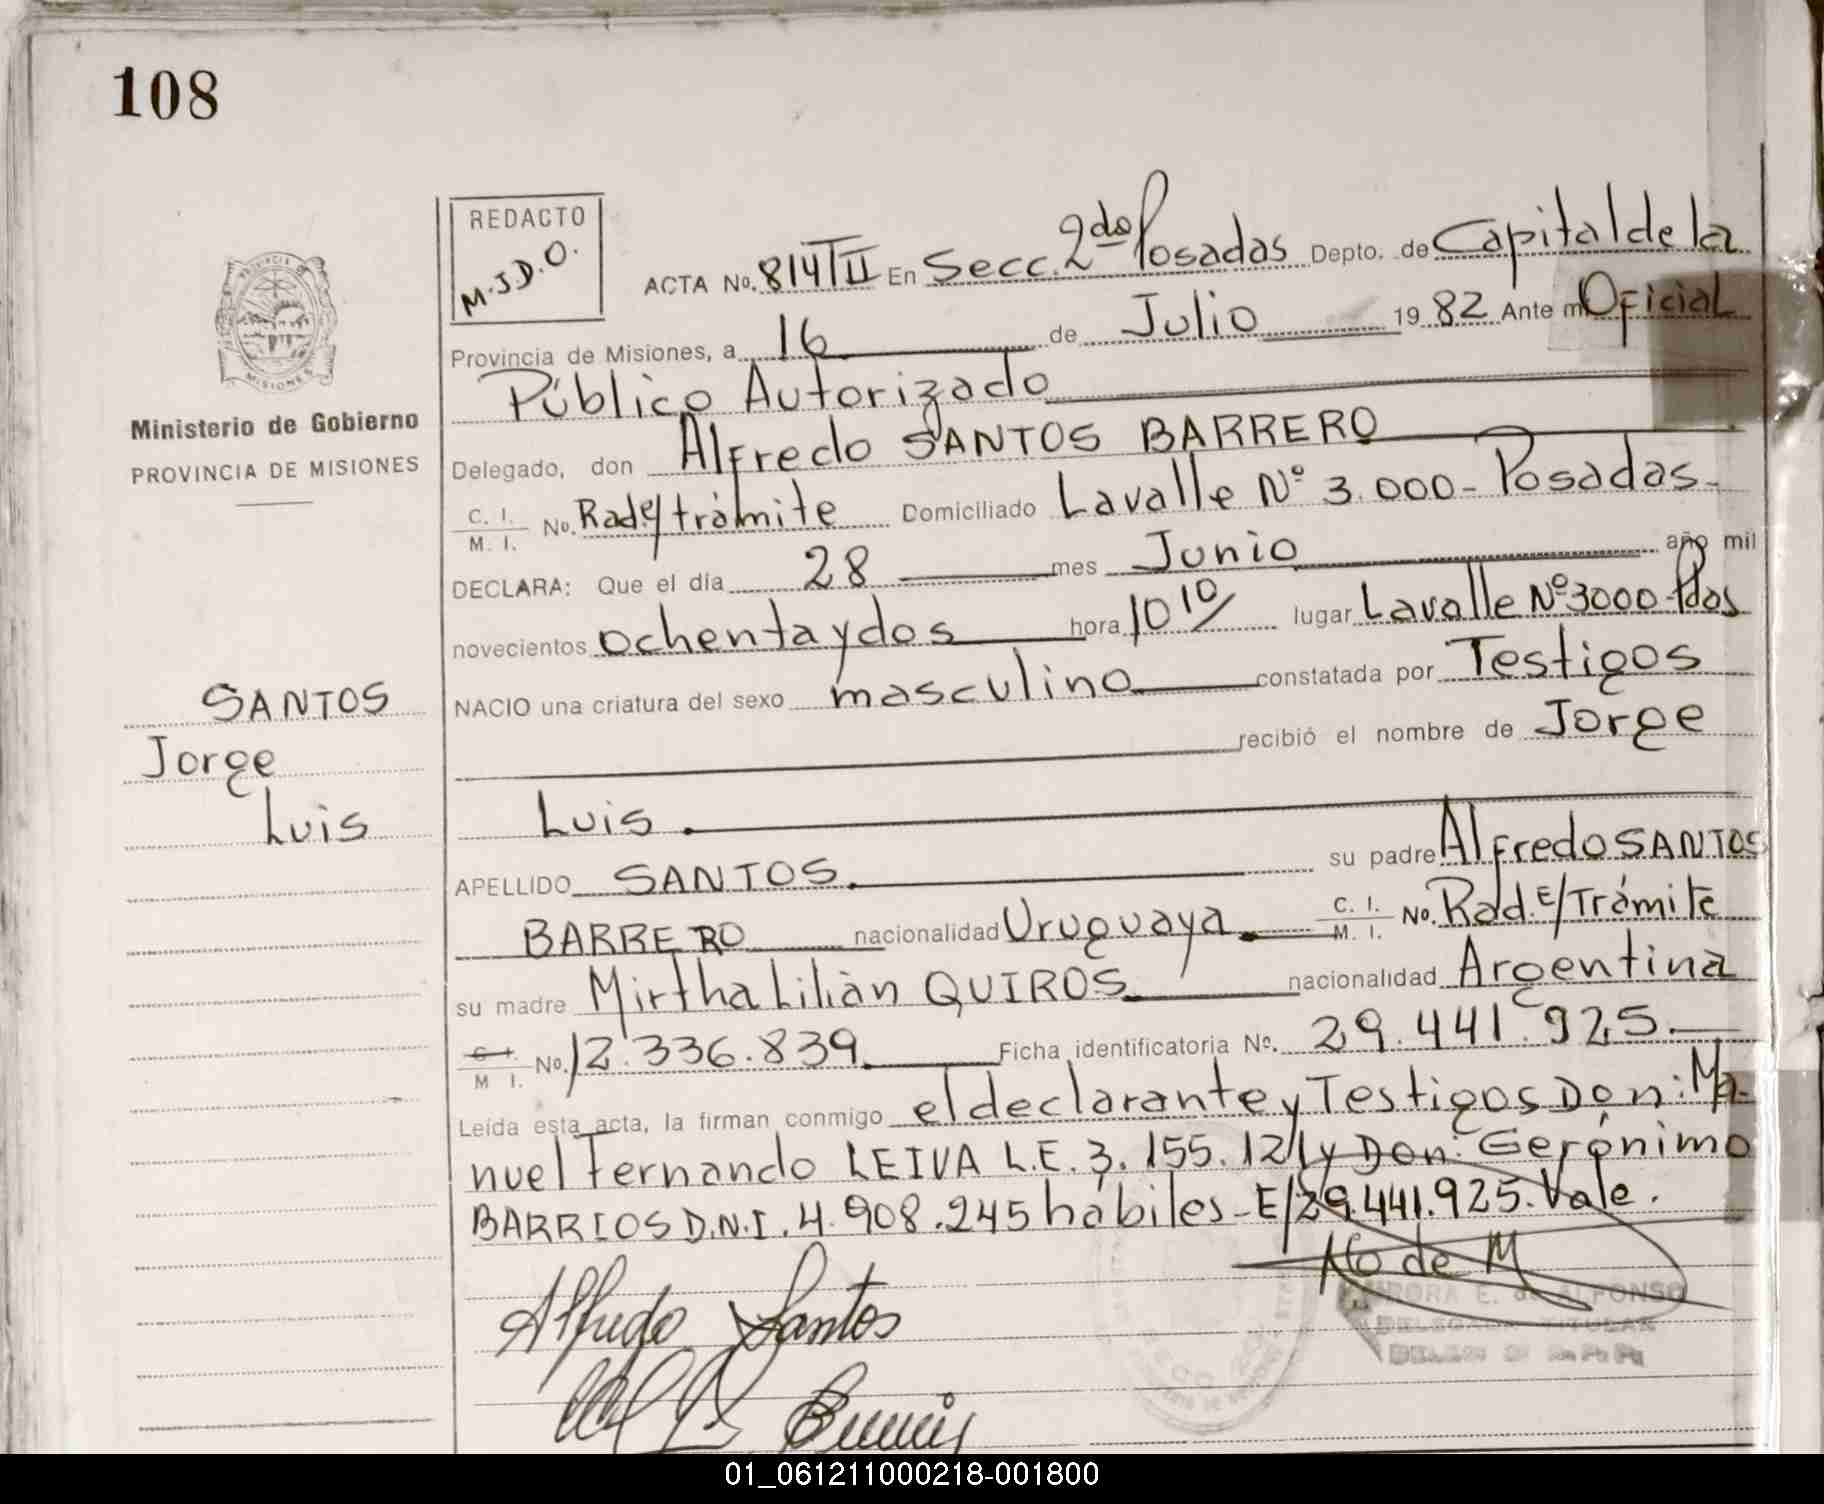 108
REDACTO
M.J.D.O.
ACTA No. 814 TII En Secc. 2da Posadas Depto. de Capital de la
Provincia de Misiones, a 16 de Julio 1982 Ante mí Oficial
Público Autorizado
Delegado, don Alfredo SANTOS BARRERO
C. I.
M. I. No. Rad.E/trámite Domiciliado Lavalle Nº 3.000 - Posadas -
DECLARA: Que el día 28 mes Junio año mil
novecientos ochenta y dos hora 10 10/ lugar Lavalle Nº 3000 - Pdas
NACIO una criatura del sexo masculino constatada por Testigos
recibió el nombre de Jorge
Luis.
APELLIDO SANTOS. su padre Alfredo SANTOS
BARRERO nacionalidad Uruguaya. C. I.
M. I. No. Rad.E/Trámite
su madre Mirtha Lilián QUIROS. nacionalidad Argentina
C. I.
M. I. No. 12.336.839. Ficha identificatoria No. 29.441.925.
Leída esta acta, la firman conmigo el declarante y Testigos Don: Ma-
nuel Fernando LEIVA L.E. 3.155.121 y Don: Gerónimo
BARRIOS D.N.I. 4.908.245 hábiles - E/29.441.925. Vale.
Alfredo Santos
No de M
E. de ALFONSO
PROVINCIA DE
MISIONES
Ministerio de Gobierno
PROVINCIA DE MISIONES
SANTOS
Jorge
Luis
01_061211000218-001800